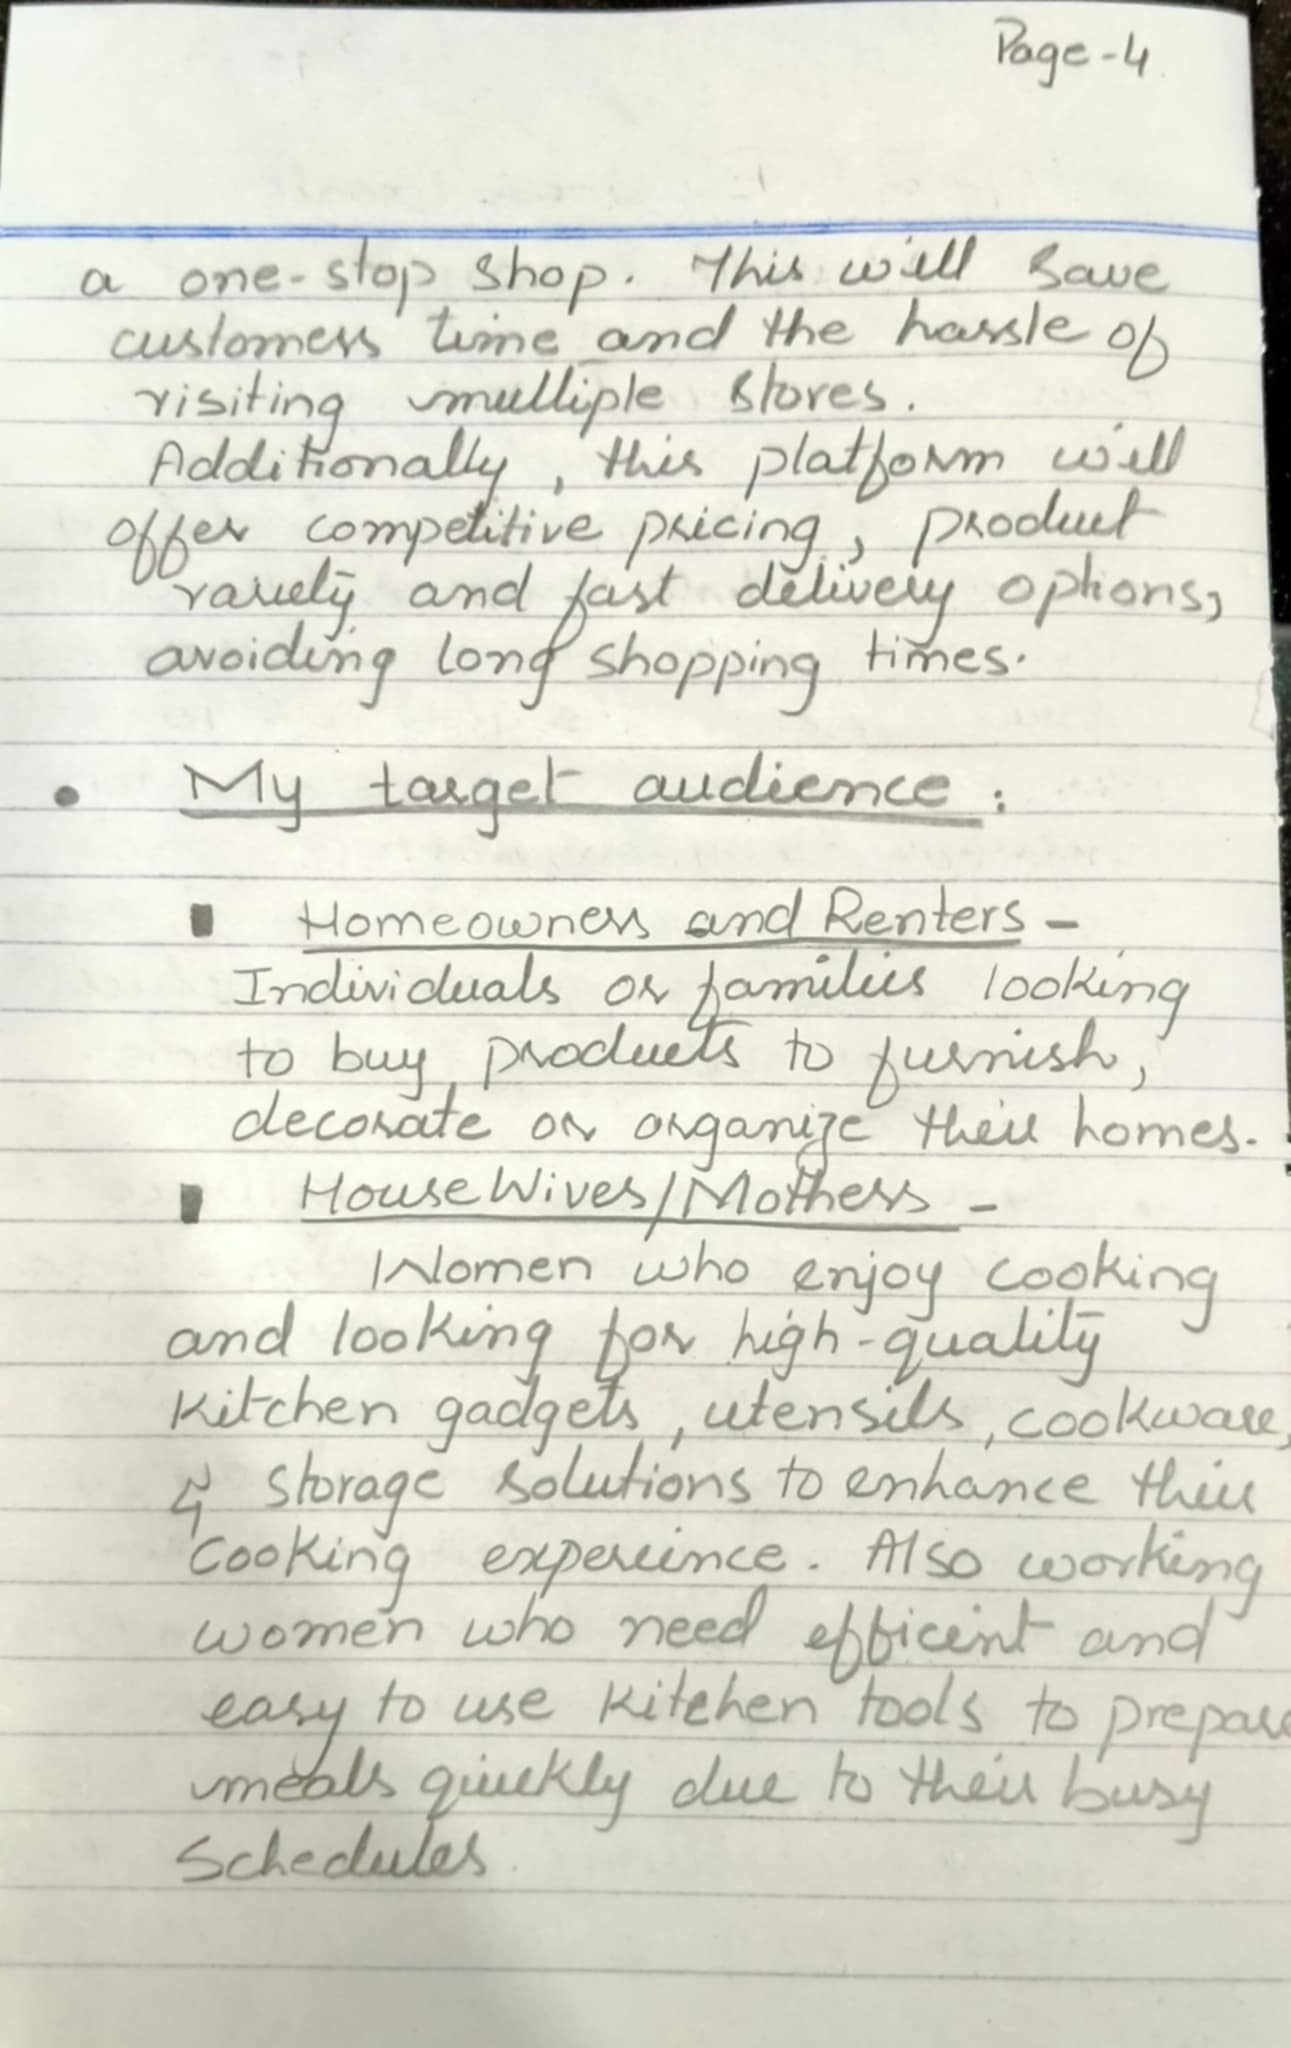 Page-4
a one-stop shop. This will save
customers time and the hassle of
visiting multiple stores.
Additionally, this platform will
offer competitive pricing, product
variety and fast delivery options,
avoiding long shopping times.
• My target audience :
▪ Homeowners and Renters -
Individuals or families looking
to buy products to furnish,
decorate or organize their homes.
▪ HouseWives/Mothers -
Women who enjoy cooking
and looking for high-quality
kitchen gadgets, utensils, cookware,
& storage solutions to enhance their
cooking expereince. Also working
women who need efficent and
easy to use kitchen tools to prepare
meals quickly due to their busy
schedules.